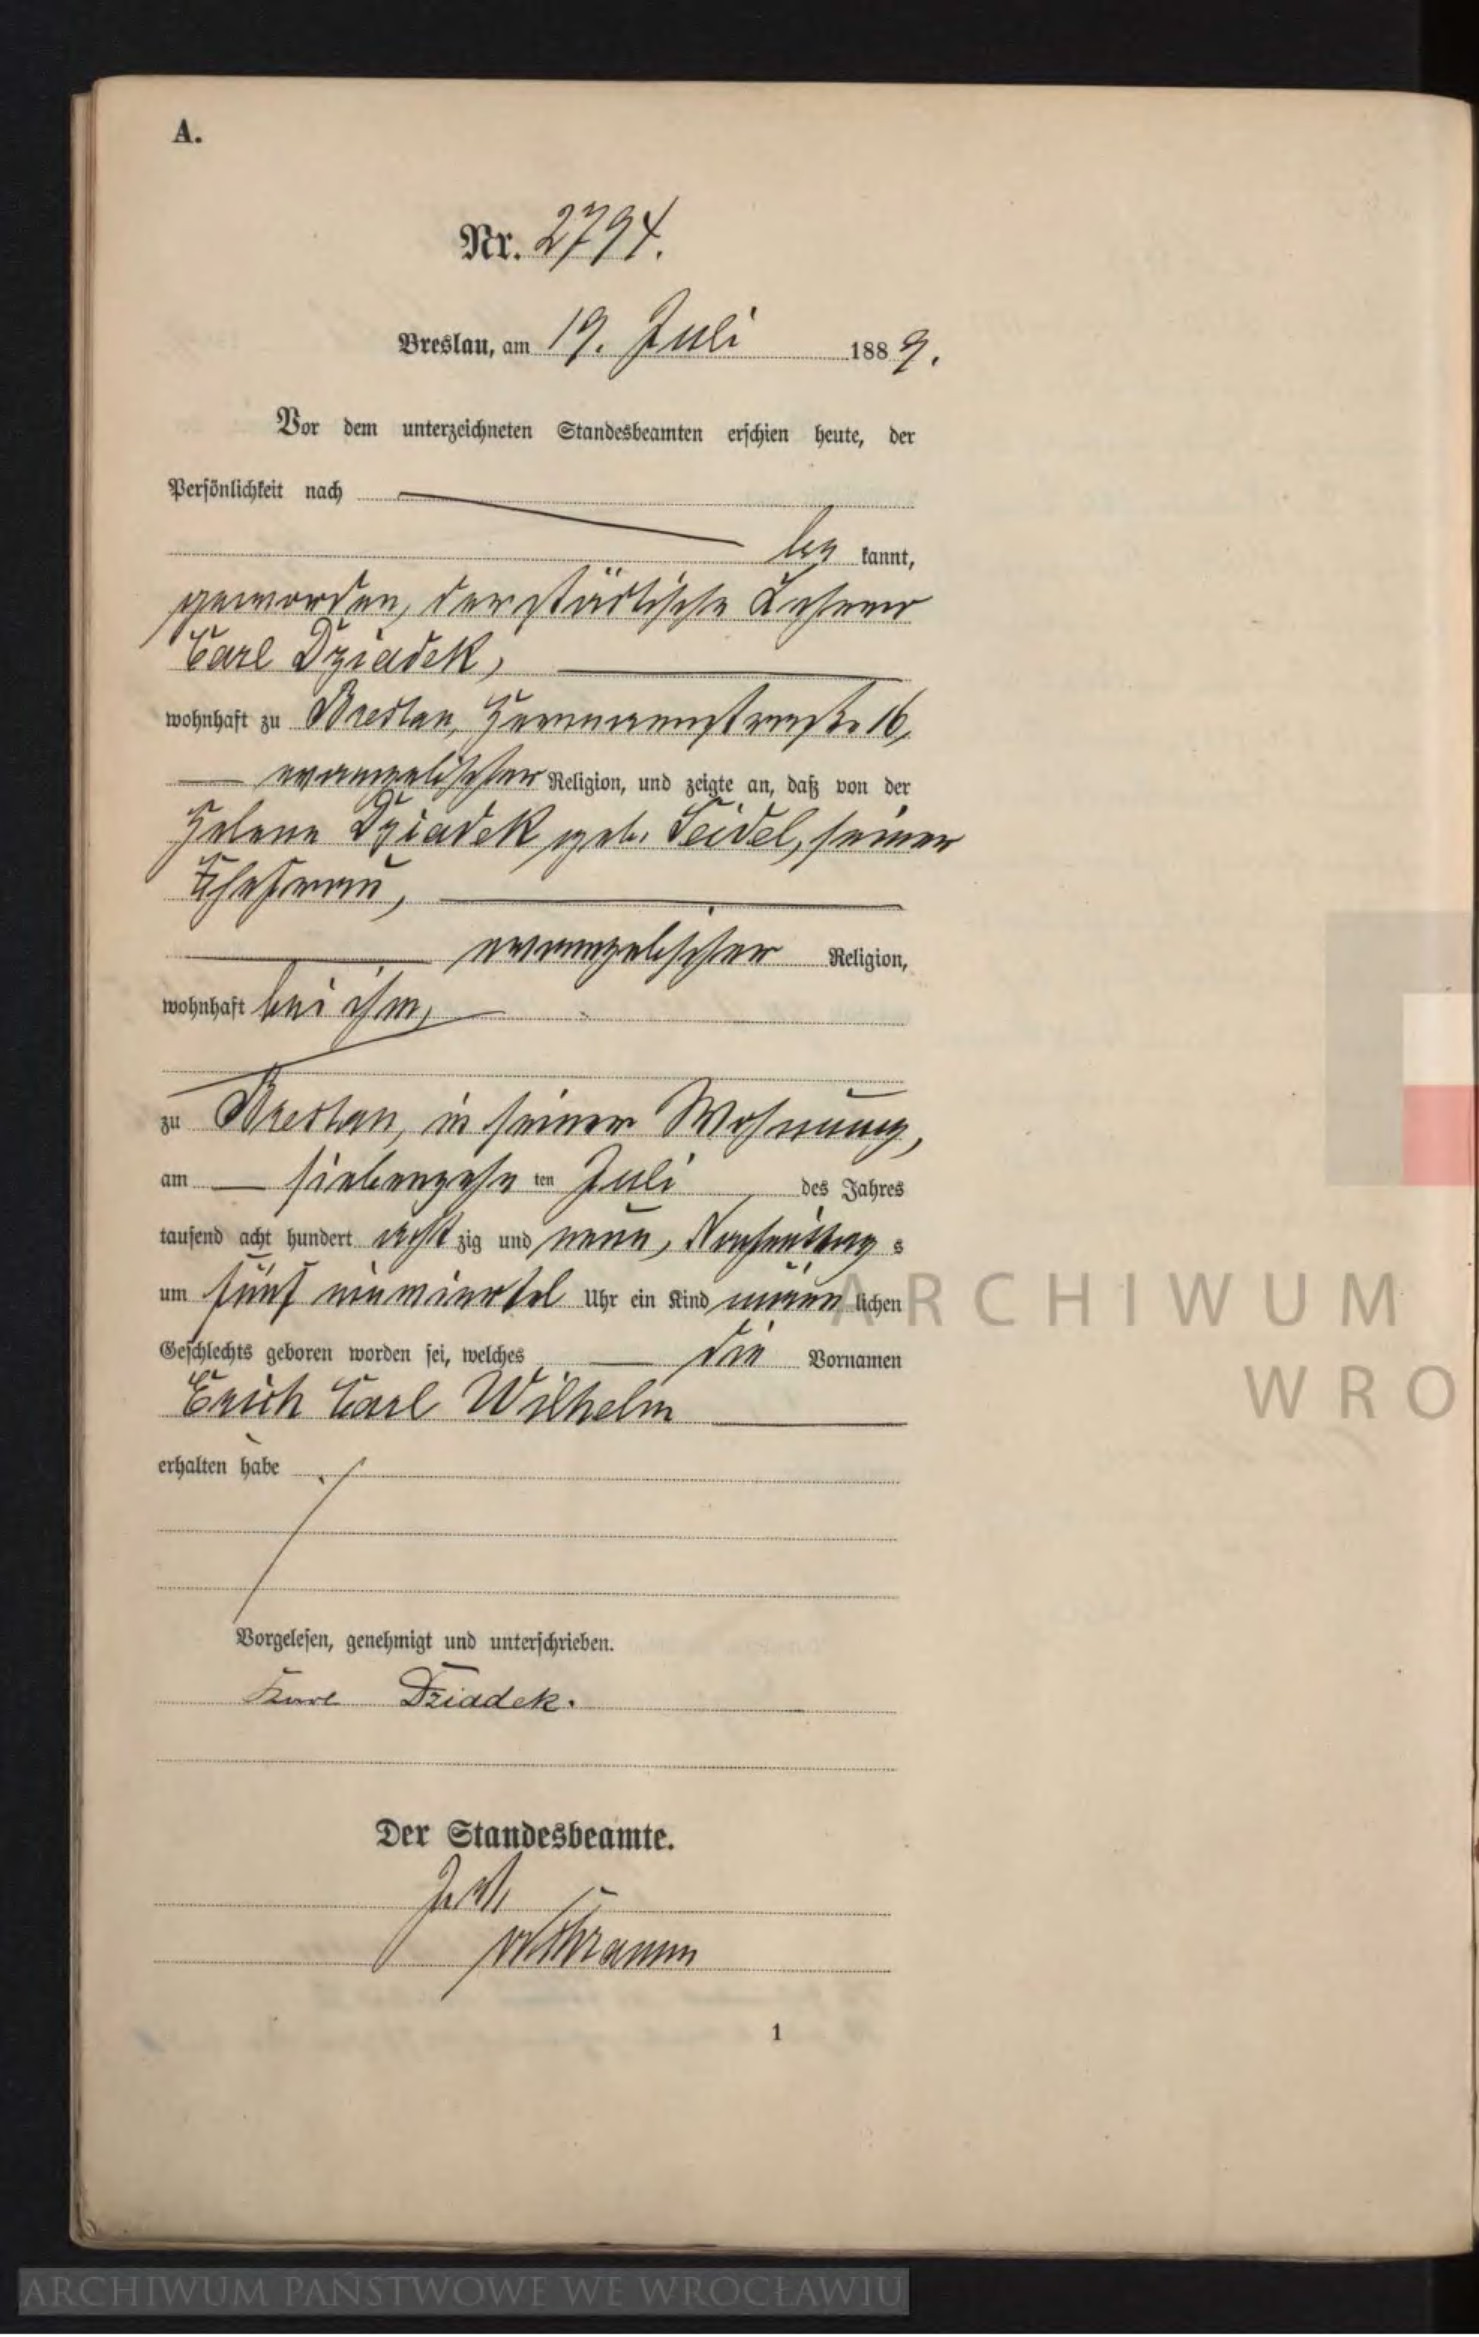 A.
Nr. 2794.
Breslau, am 19. Juli 1889.
Vor dem unterzeichneten Standesbeamten erschien heute, der
Persönlichkeit nach
be kannt,
geworden, der städtische Lehrer
Carl Dziadek,
wohnhaft zu Breslau, Herrmannstraße 16,
evangelischer Religion, und zeigte an, daß von der
Helene Dziadek geb. Seidel, seiner
Ehefrau,
evangelischer Religion,
wohnhaft bei ihm,
zu Breslau, in seiner Wohnung,
am siebenzehn ten Juli des Jahres
tausend acht hundert acht zig und neun, Nachmittag s
um fünf einviertel Uhr ein Kind männ lichen
Geschlechts geboren worden sei, welches die Vornamen
Erich Carl Wilhelm
erhalten habe
Vorgelesen, genehmigt und unterschrieben.
Karl Dziadek.
Der Standesbeamte.
1
ARCHIWUM
WRO
ARCHIWUM PAŃSTWOWE WE WROCŁAWIU